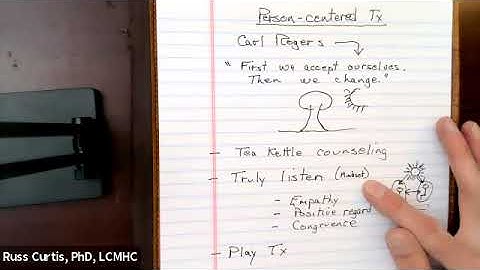 Person-centered Tx
Carl Rogers
"First we accept ourselves.
Then we change."
- Tea Kettle counseling
- Truly listen (Mindset)
- Empathy
- Positive regard
- Congruence
- Play Tx
Russ Curtis, PhD, LCMHC